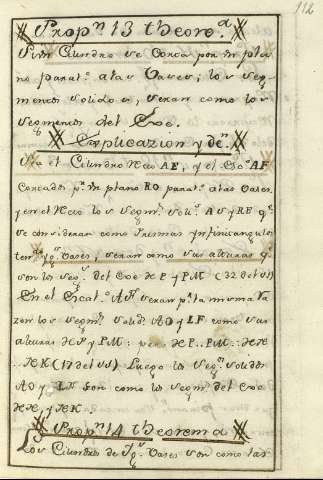 112
Propn 13 theore.a
Si un Cilindro se Corta por un pla
no paral.o a las Vases; los seg
mentos solidos, seran como los
segmentos del Exe.
Explicazion y den.
Sea el Cilindro Recto AE, y el Esco AF
Cortados pr un plano RO paral.o a las Vases,
y en el Recto los segmtos solios AS y RE qe
se consideran como Prismas ynfinitangulos
ten.s ygs Vases, seran como sus alturas q
son los segs del Exe de P y PM (32 del VI)
En el Escalo AF seran pr la misma Ra
zon los segmtos solidos AO y LF como sus
alturas de P y PM: pero de P..PM::
(17 del VI) Luego los segs solidos
AO y LF son como los segmtos del Exe
Propn 14 theorema
Los Cilindros de ygs Vases son como las